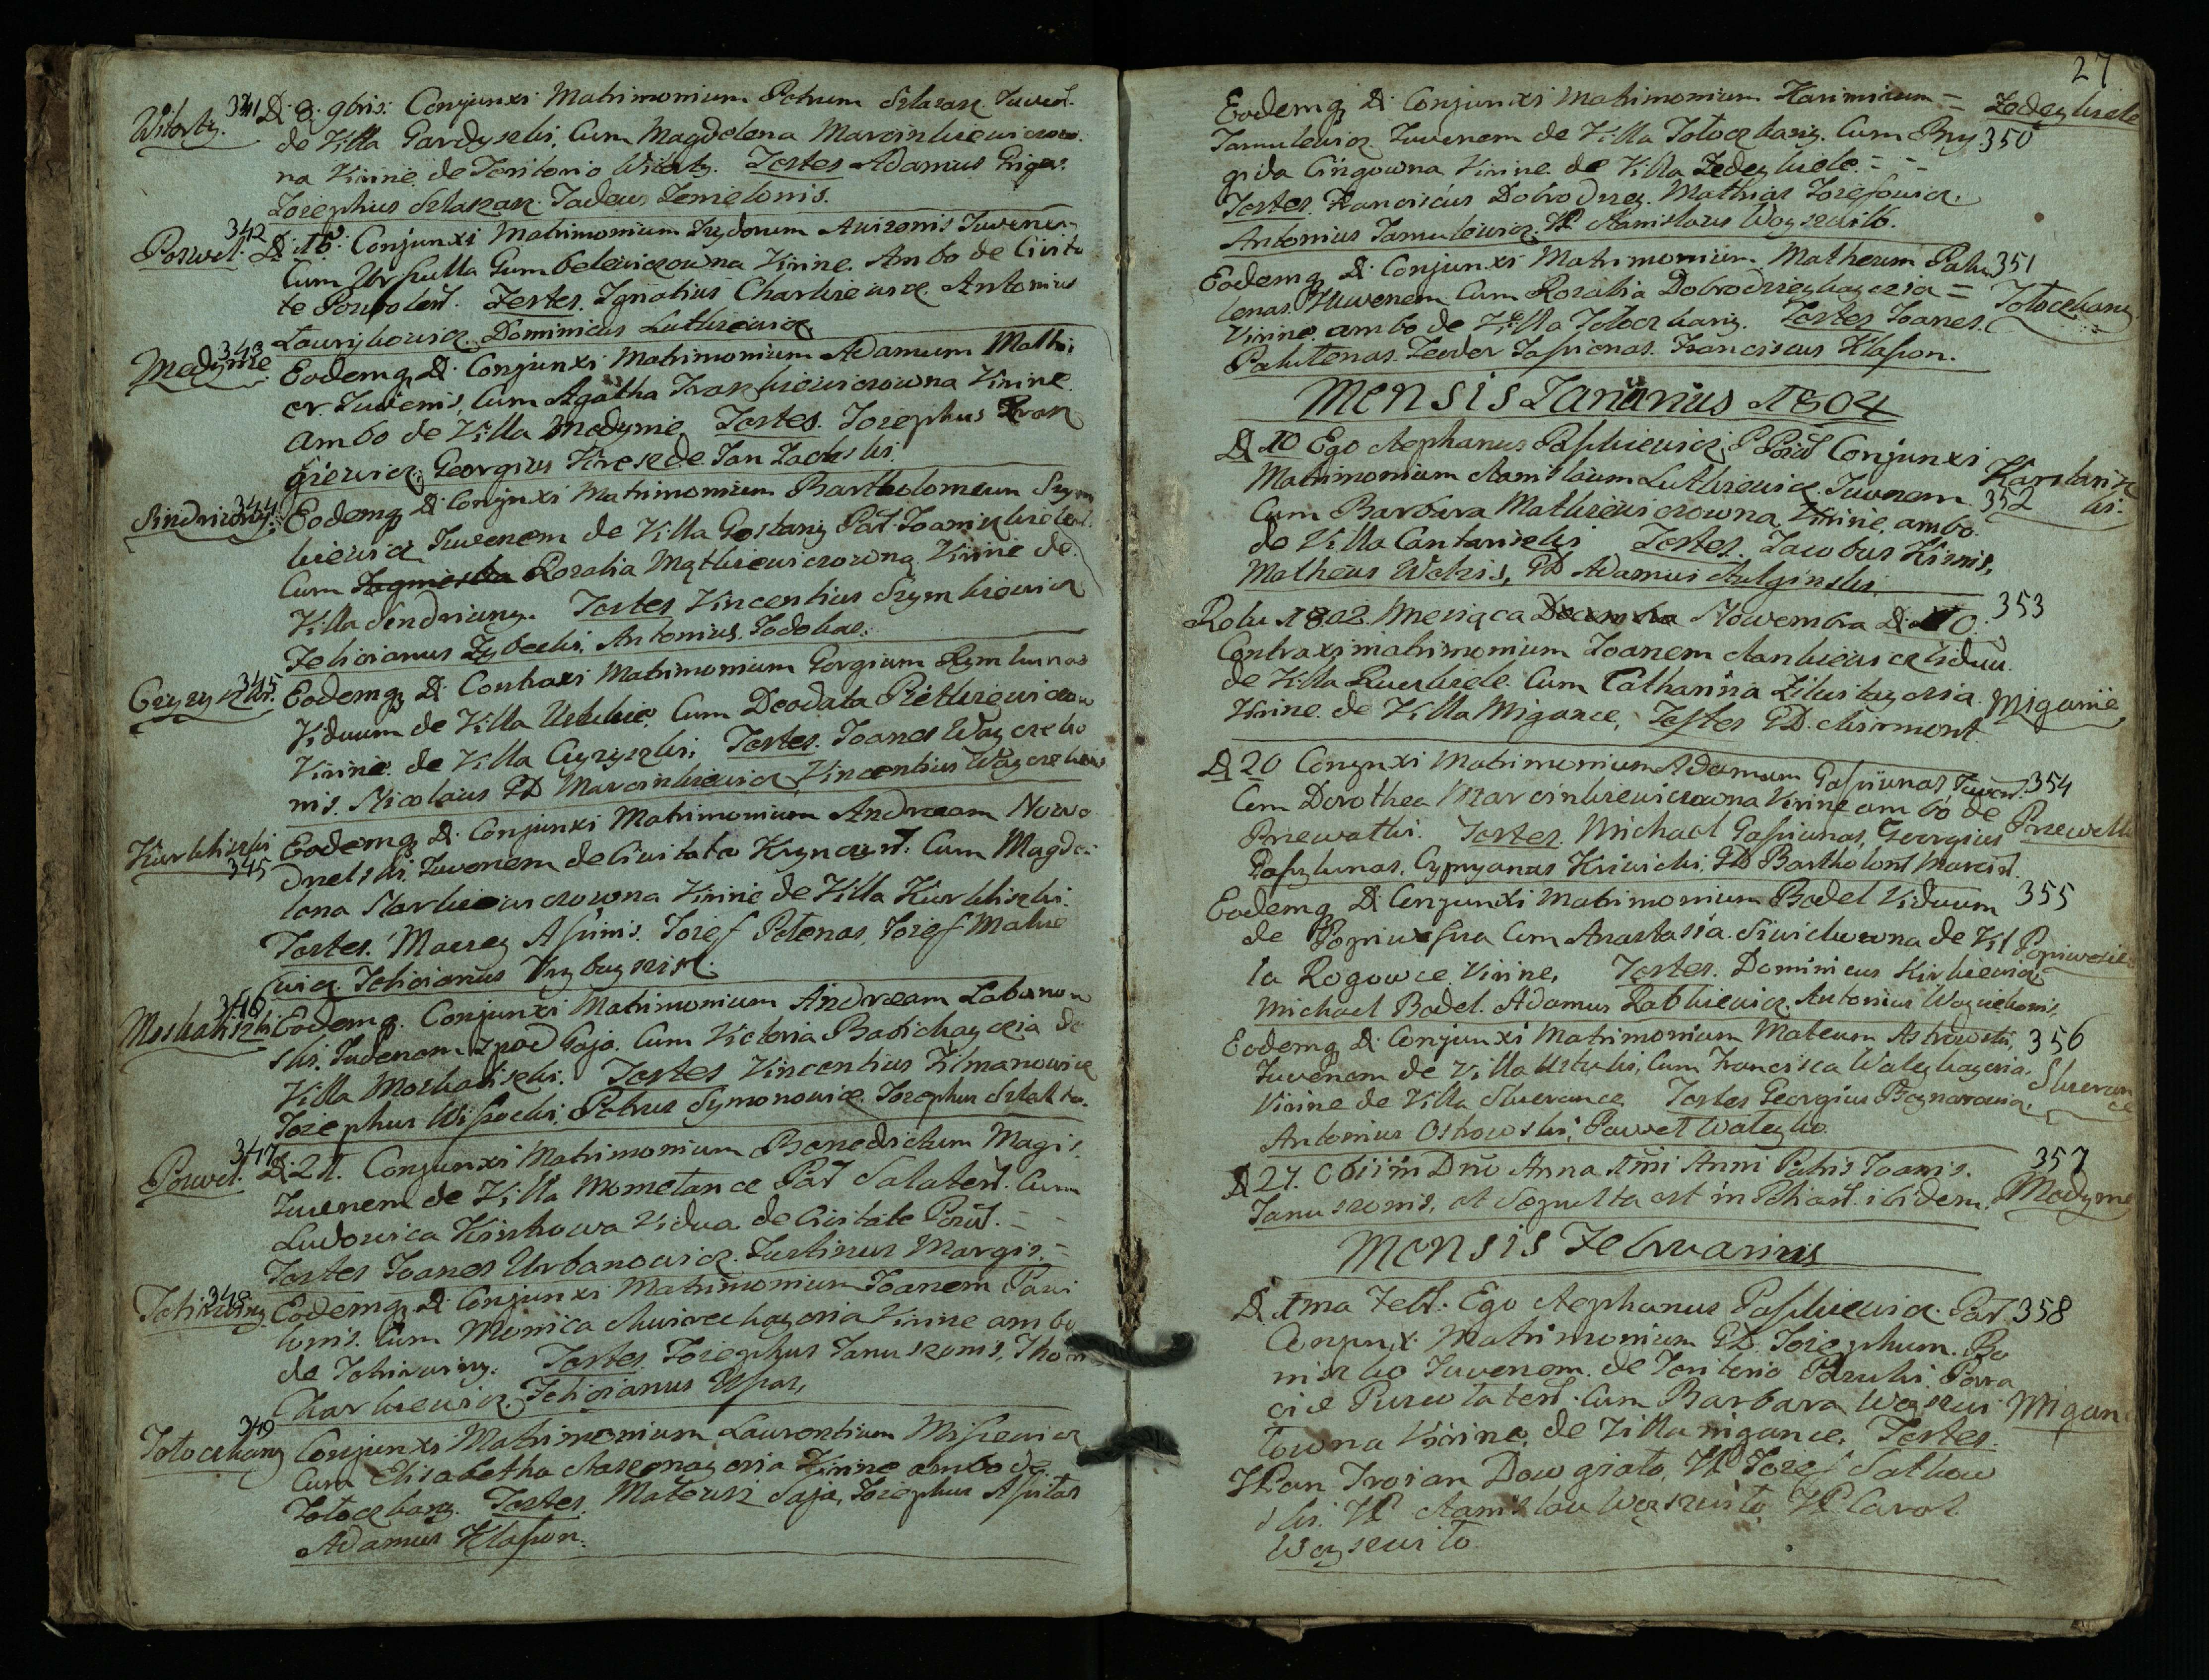 Witorty. 341 D. 8. 9bris: Conjunxi Matrimonium Petrum Szlazasz. Juven.
de Villa Gardyszki, Cum Magdelena Marcinkiewiczow
na Virine. de Teritorio Witorty. Testes Adamus Griga.
Iozephus Szlazasz. Tadeus Zemielonis.
Poswol. 342 D. 15. Conjunxi Matrimonium Izydorum Awizonis Juvenem
Cum Urszulla Gumbelewiczowna Virine. Ambo de Civita
te Poswolen. Testes. Ignatius Charkiewicz. Antonius
Lawrynowicz. Dominicus Lutkiewicz.
Medynie 343 Eodemq D. Conjunxi Matrimonium Adamum Malki
er. Juvenis, Cum Agatha Frankiewiczowna Virine
ambo de Villa Medynie Testes. Jozephus Fran
giewicz, Georgius Kireszde. Jan Zacks ki.
Sindriuny 344 Eodemq D. Conjunxi Matrimonium Bartholomeum Szym
kiewicz Juvenem de Villa Gostany Par.
Cum Rozalia Matkiewiczowna Virine de
Villa Sendriuny. Testes Vincentius Szymkiewicz
Felicianus Zybecki, Antonius Todobas.
Czyzyszki. 345 Eodemq D. Contraxi Matrimonium Gorgium Rymkunas
Viduum de Villa Ustukie Cum Deodata Pietkiewiczow
Virine. de Villa Czyzyszki, Testes. Joanes Waycieku
nis. Nicolaus GD Marcinkiewicz, Vincentius Wayciekunis
Kurkliszki 345 Eodemq D. Conjunxi Matrimonium Andream Nowo
Juvenem de Civitate Kryncyn. Cum Magda
lena Narkiewiczowna Virine de Villa Kurkliszki.
Testes. Maciey Aszunis. Jozef Potenas, Jozef Mackie
wicz. Felicianus
Moskaliszki 346 Eodemq. Conjunxi Matrimonium Andream Labanow
ski. Juvenem z pod Gaja. Cum Victoria Babickayczia de
Villa Moskaliszki. Testes Vincentius Zilmanowicz
Jozephus Wisocki, Petrus Symonowicz. Jozephus
Poswol. 347 D. 21. Conjunxi Matrimonium Benedictum Magis.
Juvenem de Villa Mometance Par Salaten. Cum
Ludowica Kirkowa Vidua de Civitate Posw. =
Testes Joanes Urbanowicz. Justinus Margis. =
348 Eodemq D. Conjunxi Matrimonium Joanem Pawi
lonis. Cum Monica Virine ambo
de Testes. Jozephus Januszonis, Thom
Charkiewicz. Felicianus Uszas.
Totoczkany 349 Conjunxi Matrimonium Laurentium Misiewicz
Cum Elisabetha Staszonayczia Virine ambo de
Totoczkany. Testes Mateusz Saja, Jozephus Aszitas
Adamus Klason.
27
Eodemq D. Conjunxi Matrimonium Kazimirum = Zedeykiele
Jamulewicz Juvenem de Villa Totoczkany. Cum Bry 350
gida Cingowna Virine. de Villa Zedeykiele. = -
Testes. Franciscus Dobrodziey. Mathias Jozefowicz.
Antonius Jamulewicz. W. Stanislaus Woyszwillo.
Eodemq D. Conjunxi Matrimonium Matheum Palu 351
tenas. Juvenem Cum Rozalia Dobrodzieykayczia = Totoczkany
Virine ambo de Villa Totoczkany. Testes Joanes.
Palutenas. Teodor Jasienas. Franciscus Klason.
Mensis Januarius 1804
D 10 Ego Stephanus Paszkiewicz P. Posw Conjunxi
Matrimonium Stanislaum Lutkiewicz. Juvenem Kantarisz
Cum Barbara Matkiewiczowna, Virine, ambo. 352 ki.
de Villa Cantariszki Testes. Jacobus Kirnis,
Matheus Wekris, GD Adamus Stulginski.
Roku 1802. Mensca Nowembra D. 10. 353
Contraxi matrimonium Joanem Stankiewicz Viduu.
de Villa Cum Catharina
Virine. de Villa Migance, Testes GD. Szirmont. Miganie
D 20 Conjunxi Matrimonium Adamum Gasiunas, Juven. 354
Cum Dorothea Marcinkiewiczowna Virine ambo de
Priewalki. Testes. Michael Gasiunas, Georgius Priewalk
Paszkunas, Cypryanas Kriwicki. GD Bartholom Marcin.
Eodemq D. Conjunxi Matrimonium Badel Viduum 355
de Popiwesza Cum Anastasia. Siwickowna de Vil Popiwesie
la Rogowce Virine, Testes. Dominicus Kirkiewicz
Michael Badel. Adamus Rabkiewicz. Antonius Woyciekonis.
Eodemq D. Conjunxi Matrimonium Mateum Astrowski, 356
Juvenem de Villa Ustuki, Cum Francisca Waleykayczia.
Virine de Villa Skierance, Testes Georgius Skieran
Antonius Ostrowski, Pawel Waleyko ce
D 27. Obiit in Dno Anna 1mi Anni Patris Joanis. 357
Januszonis, et Sepulta est in ibidem. Medynie
Mensis Februarius
D 1ma Feb. Ego Stephanus Paszkiewicz. Par. 358
Conjunxi Matrimonium GD. Jozephum. Bo
niszko Juvenem. de Teritorio Para
cie Cum Barbara Woyszwi
lowna Virine, de Villa migance, Testes. Migan
WPan Trojan Dowgiało, W Jozef Sutkow
ski. W Stanislau Woyszwiło, W Carol
Woyszwiło